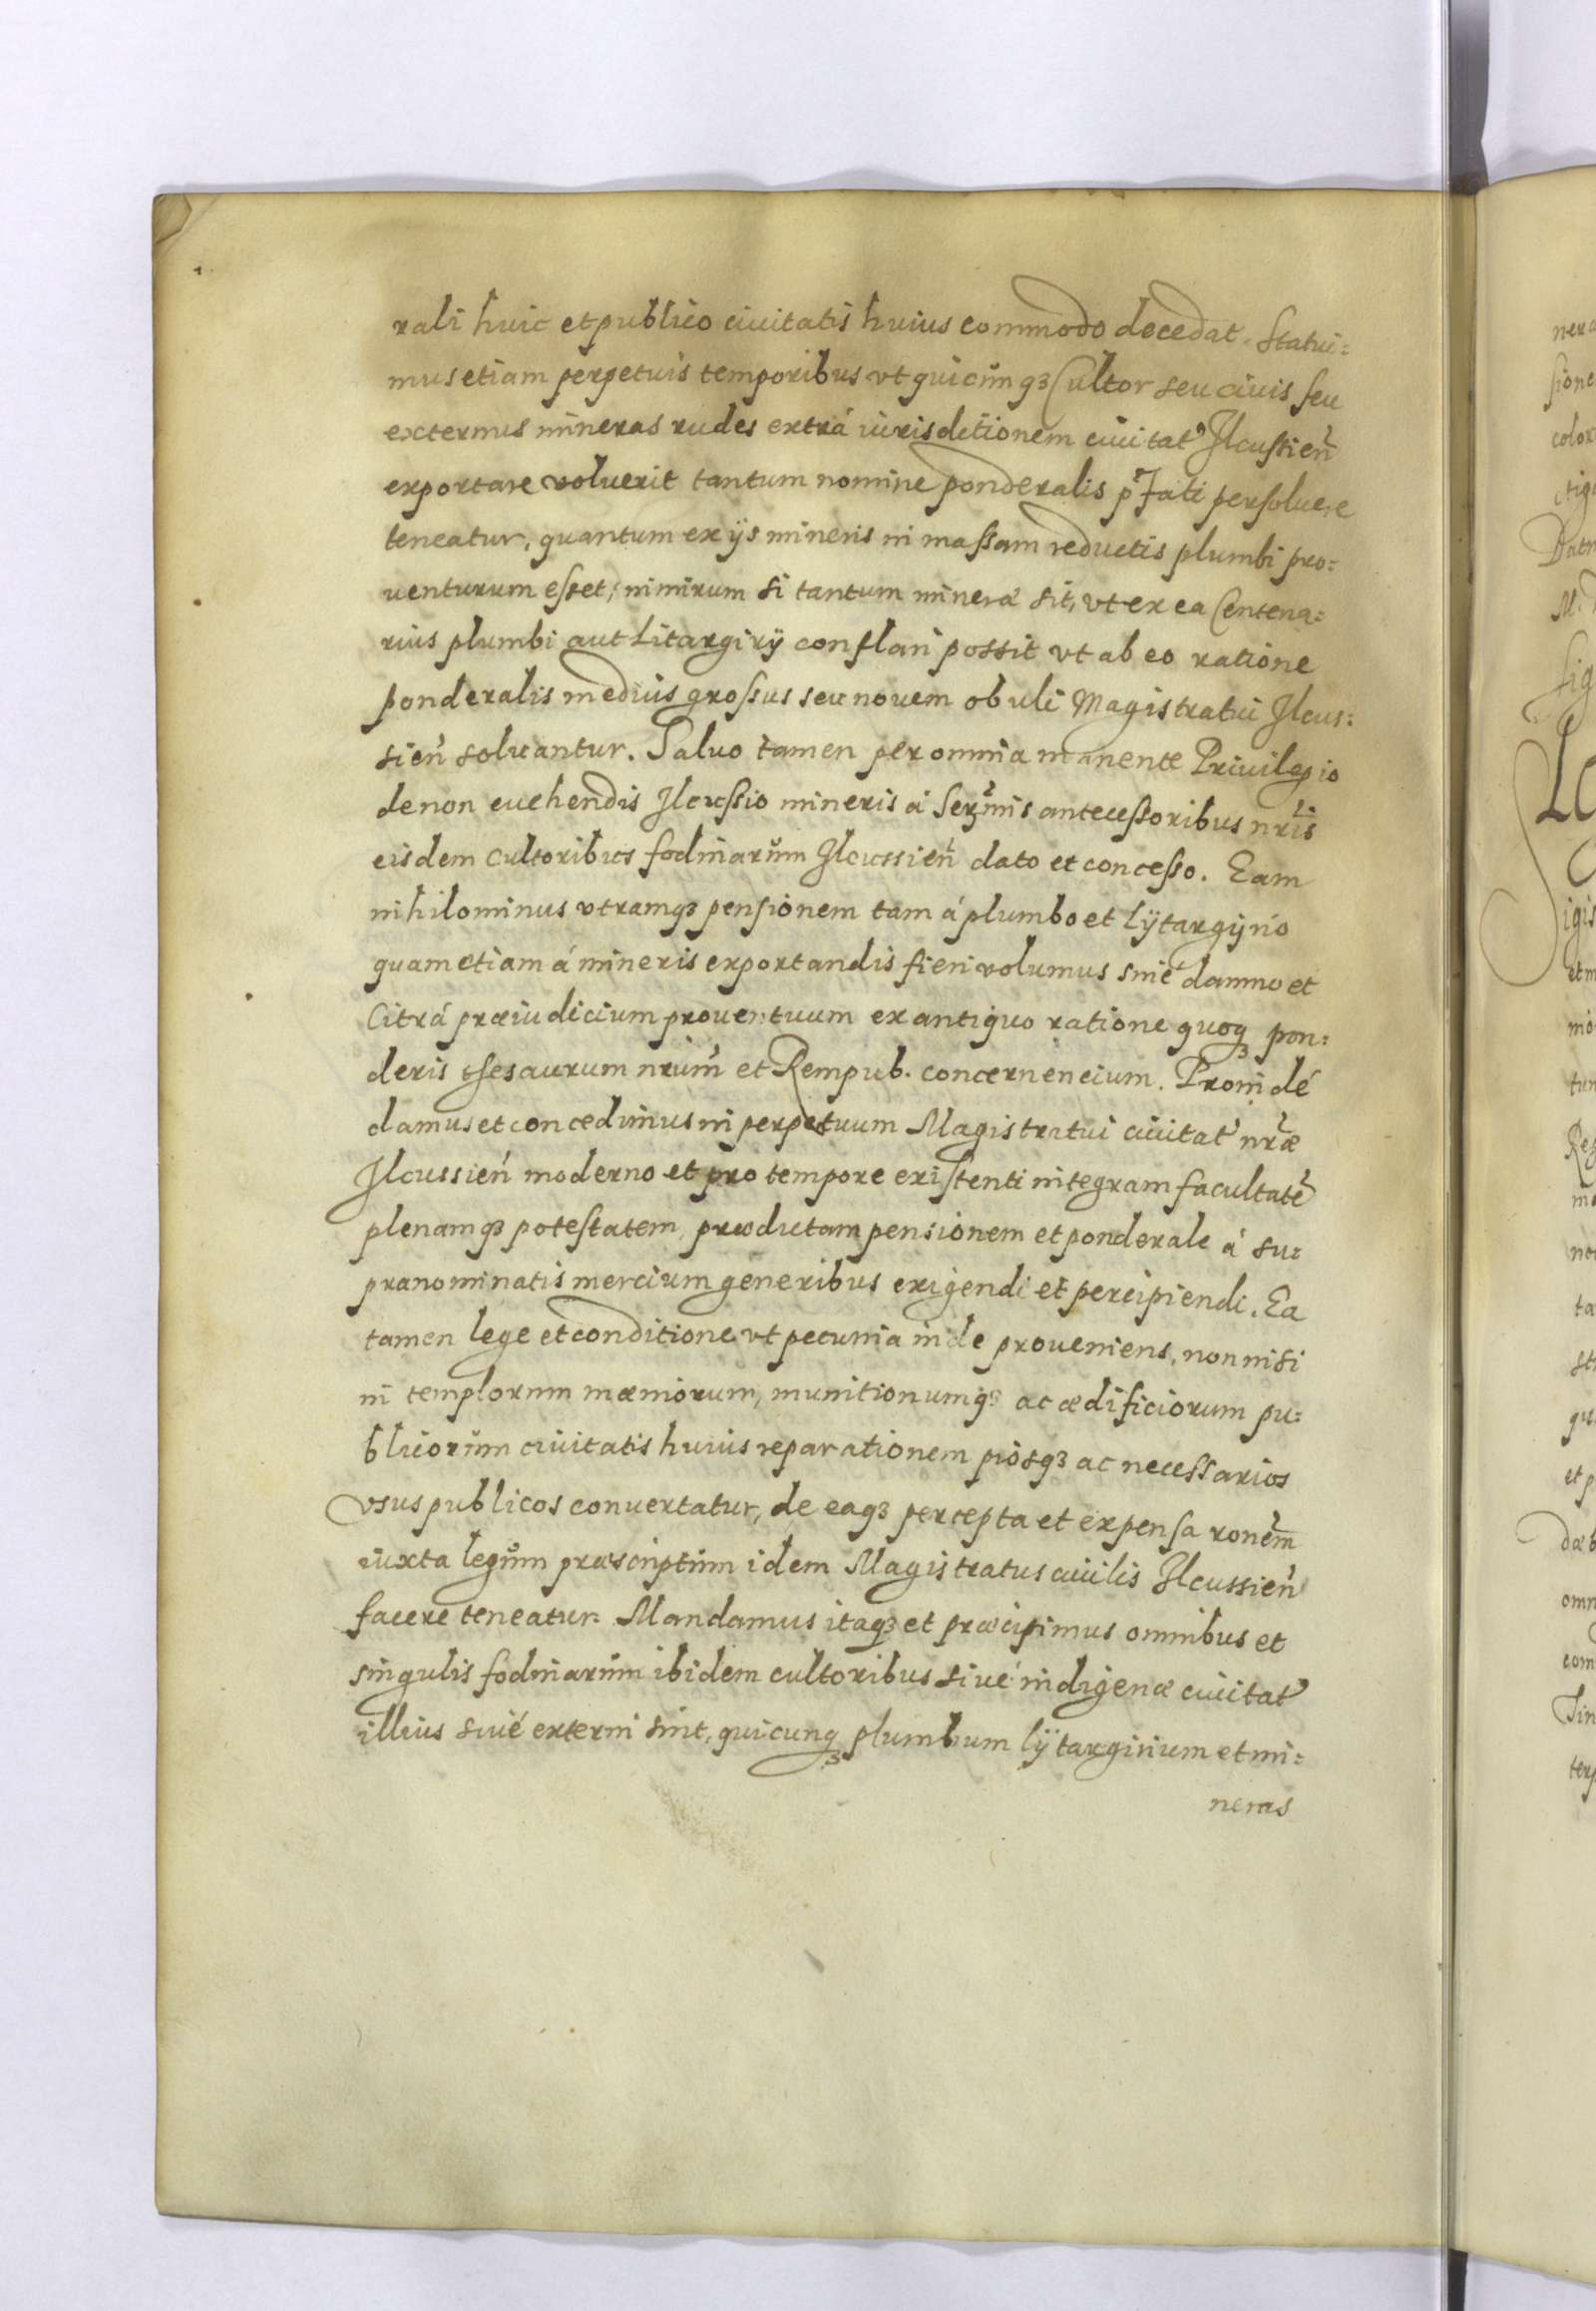 rali huic et publico ciuitatis huius commodo decedat. Statui:
mus etiam perpetuis temporibus vt quicūnqꝫ Cultor seu ciuis seu
externus mineras rudes extrá iurisdctionem ciuitatꝰ Ilcussień
exportare voluerit tantum nomine ponderalis pfati persoluere
teneatur, quantum ex ijs mineris in massam reductis plumbi pro:
uenturum esset, nimirum si tantum mineræ sit, vt ex ea Centena:
rius plumbi aut Litargirij conflari possit vt ab eo ratione
ponderalis medius grossus seu nouem obuli Magistratui Ilcus:
sień soluantur. Saluo tamen per omnia manente Priuilegio
de non euehendis Ilcussio mineris á Serm̄is antecessoribus nrīs
eisdem cultoribus fodinarum Ilcussień dato et concesso. Eam
nihilominus vtramqꝫ pensionem tam á plumbo et Lÿtargÿrio
quam etiam á mineris exportandis fieri volumus sine damno et
Citrá præiudicium prouentuum ex antiquo ratione quoqꝫ pon:
deris thesaurum nrūm et Rempub. concernencium. Proindé
damus et concedimus in perpetuum Magistratui ciuitatꝰ nrǣ
Ilcussień moderno et pro tempore existenti integram facultatē
plenamqꝫ potestatem, prædictam pensionem et ponderale á su:
pranominatis mercium generibus exigendi et percipiendi. Ea
tamen lege et conditione vt pecunia inde proueniens, non nisi
in templorum mæniorum, munitionumqꝫ ac ædificiorum pu:
blicorum ciuitatis huius reparationem piosqꝫ ac necessarios
vsus publicos conuertatur, de eaqꝫ percepta et expensa ronēm
iuxta legum præscriptum idem Magistratus ciuilis Ilcussień
facere teneatur. Mandamus itaqꝫ et præcipimus omnibus et
singulis fodinarum ibidem cultoribus siué indigenæ ciuitatꝰ
illius siué externi sint, quicunqꝫ plumbum lÿtargirium et mi:
neras